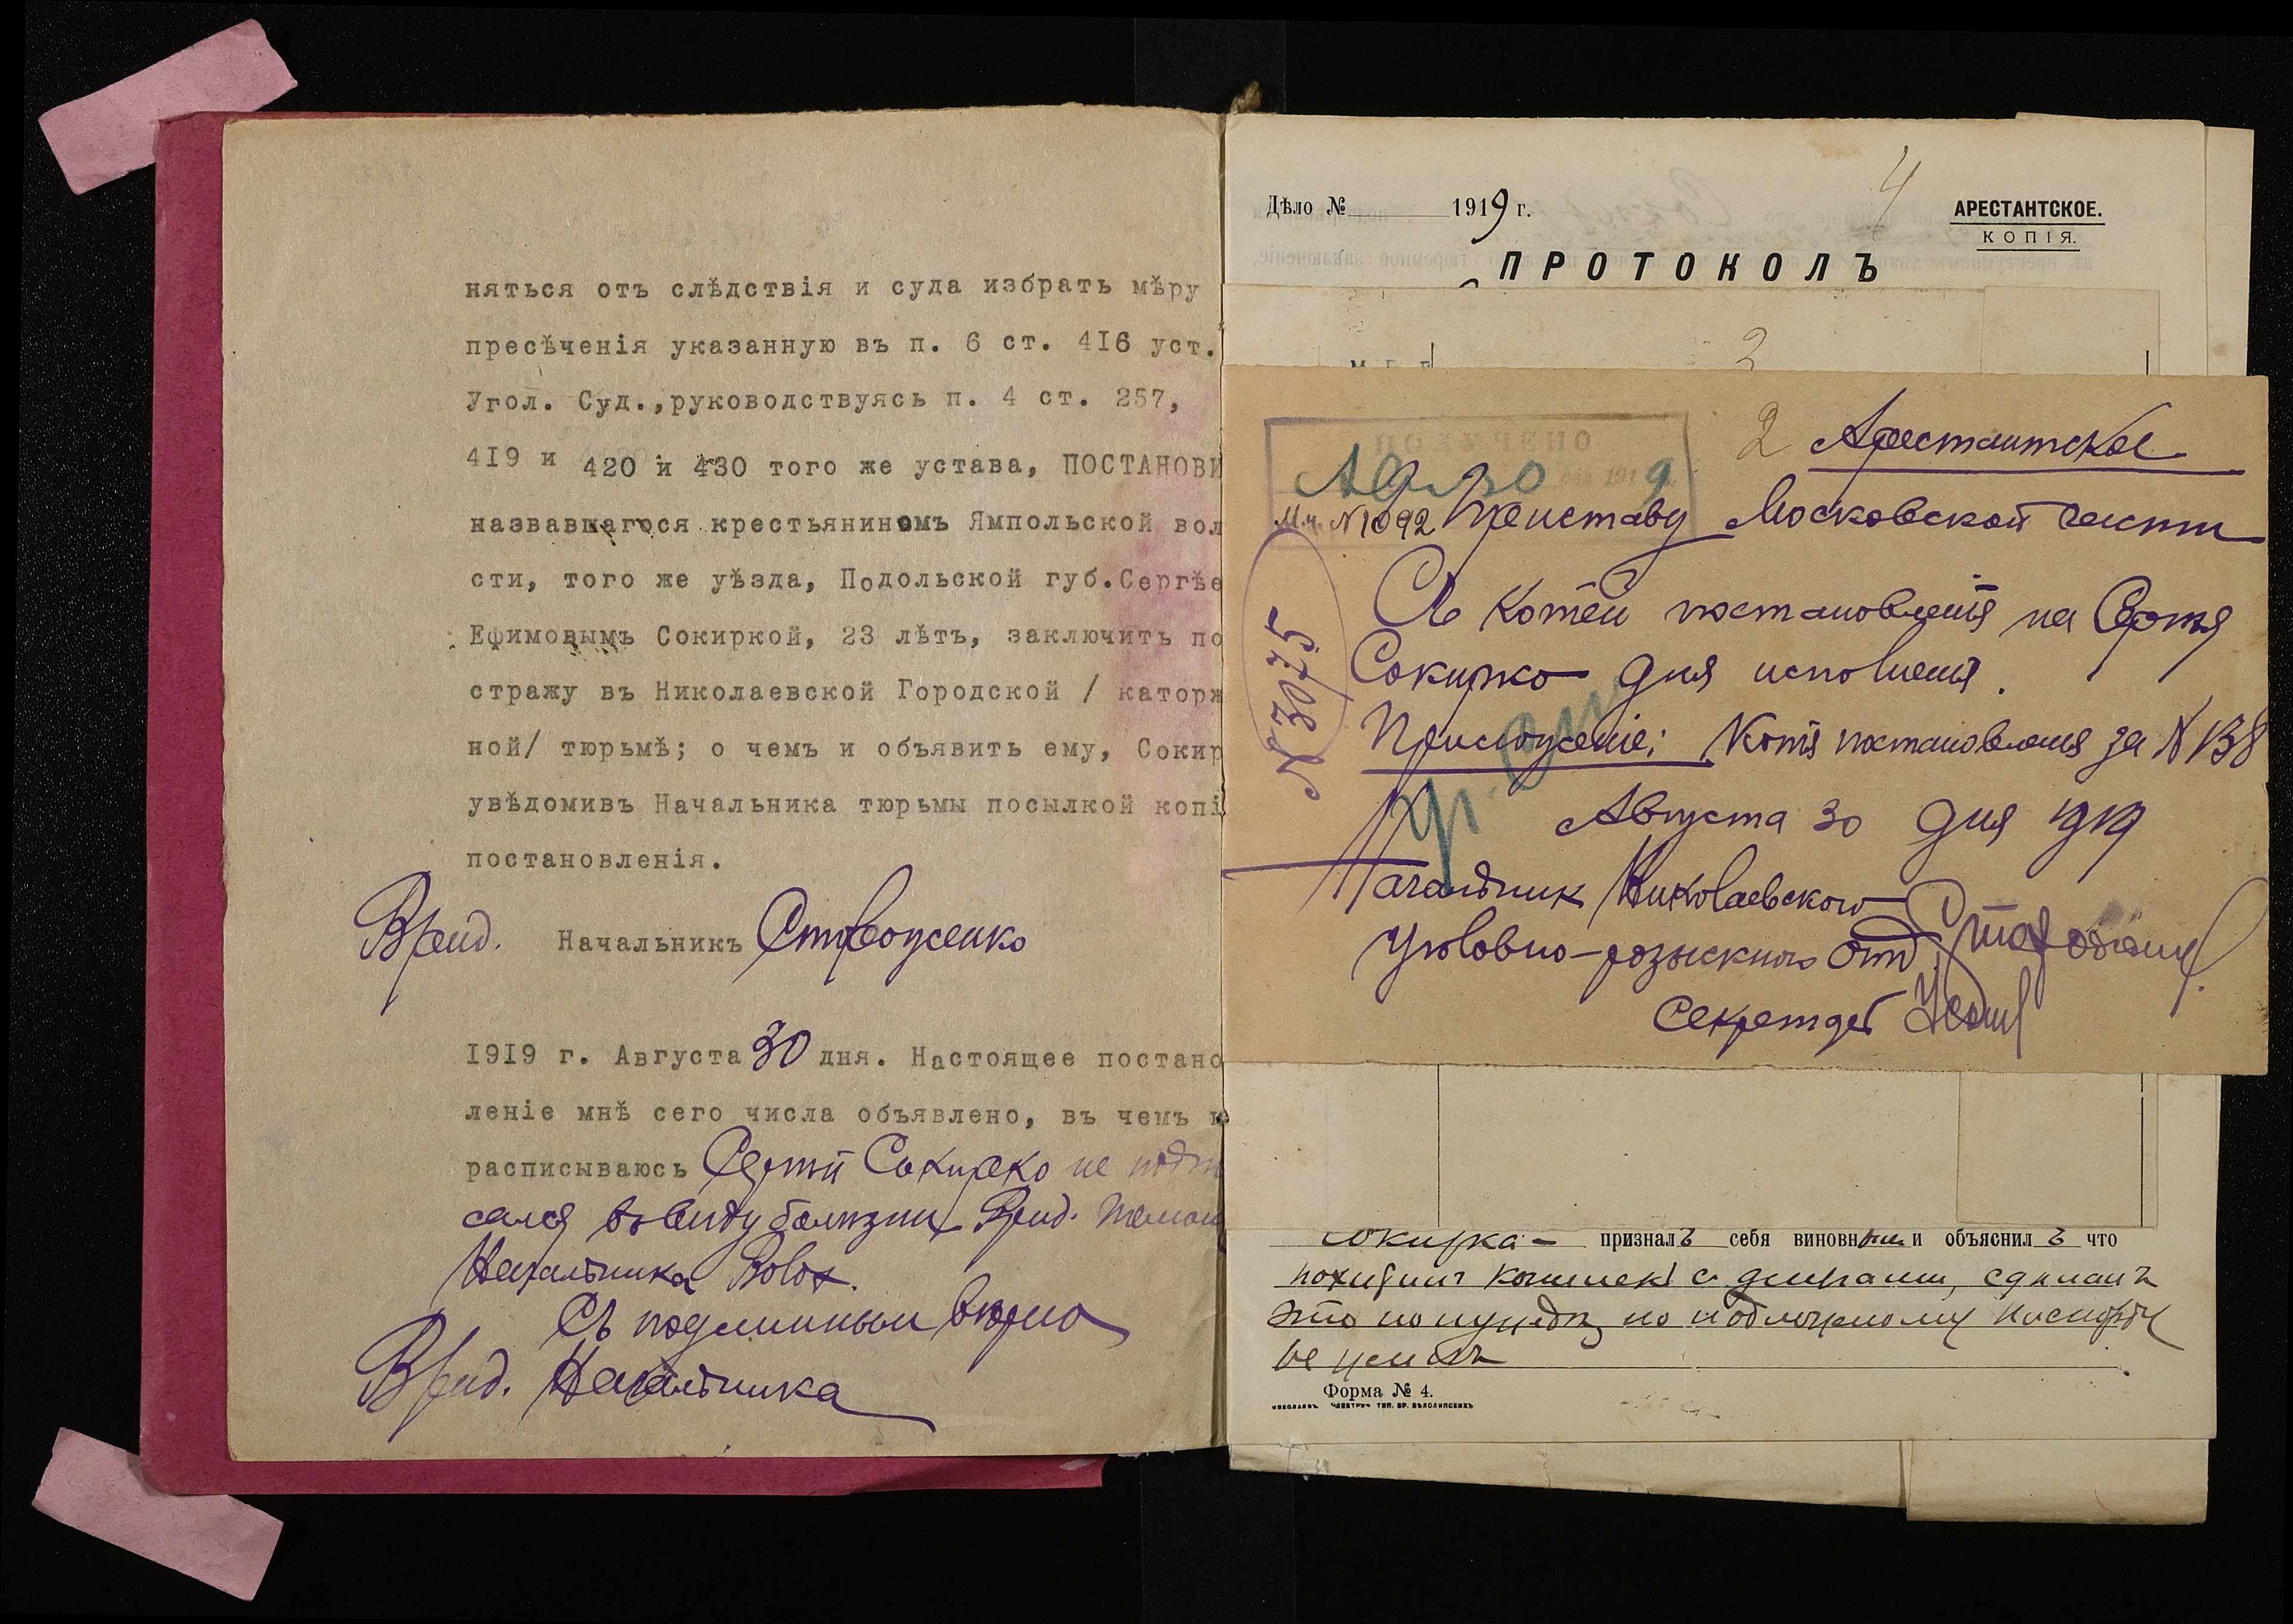 няться отъ слѣдствія и суда избрать мѣру
пресѣченія указанную въ п. 6 ст. 416 уст.
Угол. Суд.,руководствуясь п. 4 ст. 257,
419 и 420 и 430 того же устава, ПОСТАНОВИ
назвавшагося крестьяниномъ Ямпольской вол
сти, того же уѣзда, Подольской губ.Сергѣе
Ефимовымъ Сокиркой, 23 лѣтъ, заключить по
стражу въ Николаевской Городской / каторж
ной/ тюрьмѣ; о чемъ и объявить ему, Сокир
увѣдомивъ Начальника тюрьмы посылкой копі
постановленія.
Врид. Начальникъ
1919 г. Августа 30 дня. Настоящее постано
леніе мнѣ сего числа объявлено, въ чемъ и
расписываюсь Сергѣй Сокирко не подпи
сался въ виду болѣзни Врид.
Начальника
Съ подлиннымъ вѣрно
Врид. Начальника
Дѣло № 1919 г.
4
АРЕСТАНТСКОЕ.
КОПІЯ.
ПРОТОКОЛЪ
2
2 Арестантское
30 9
№ 1092 Приставу Московской части
№ 3075
Сокирко для исполненія.
Приложеніе: Копія постановленія за № 138
Августа 30 дня 1919
Начальник Николаевского
Уголовно-розыскного Отд.
Секретарь
Сокирка - призналъ себя виновным и объяснилъ что
похитил кошелек с деньгами, сделалъ
это по нужде, по подложному паспорту
не жилъ
Форма № 4.